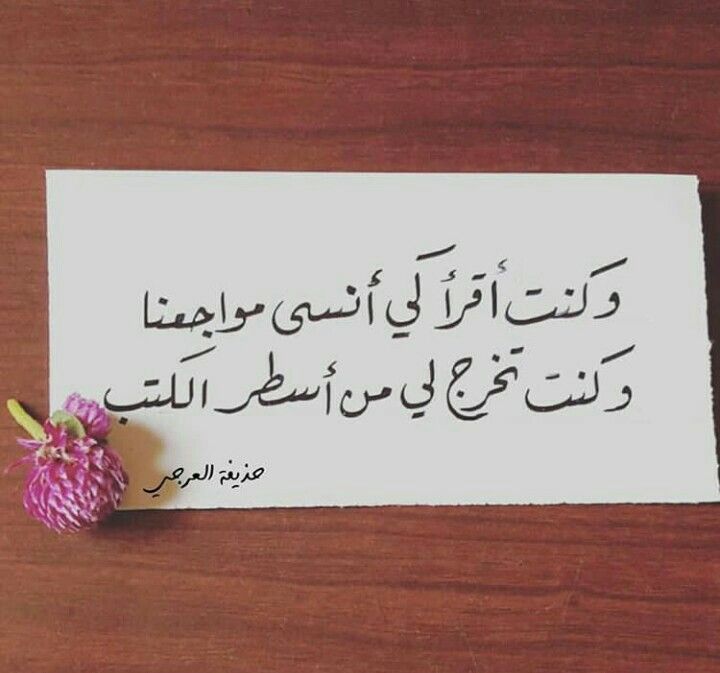 وكنت أقرأ كي أنسى مواجعنا
وكنت تخرج لي من أسطر الكتب
حذيفة العرجي